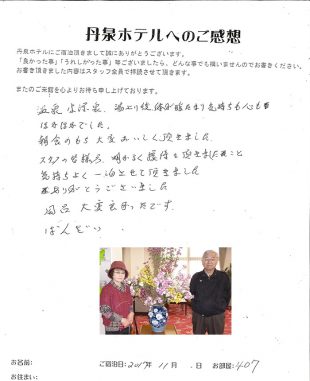 丹泉ホテルへのご感想
丹泉ホテルにご宿泊頂きまして誠にありがとうございます。
「良かった事」「うれしかった事」等ございましたら、どんな事でも構いませんのでお書きください。
お書き頂きました内容はスタッフ全員で拝読させて頂きます。
またのご来館を心よりお待ち申し上げております。
温泉
体が
気持ち
でした。
朝食の 大変おいしく頂きました
スタッフの皆様 明かるく接待を頂きましたこと
気持ちよく一泊させて頂きました
ありがとうございました
風呂 大変良かったです。
ばんざい
お名前:
ご宿泊日:2017年 11月 . 日 お部屋:407
お住まい: